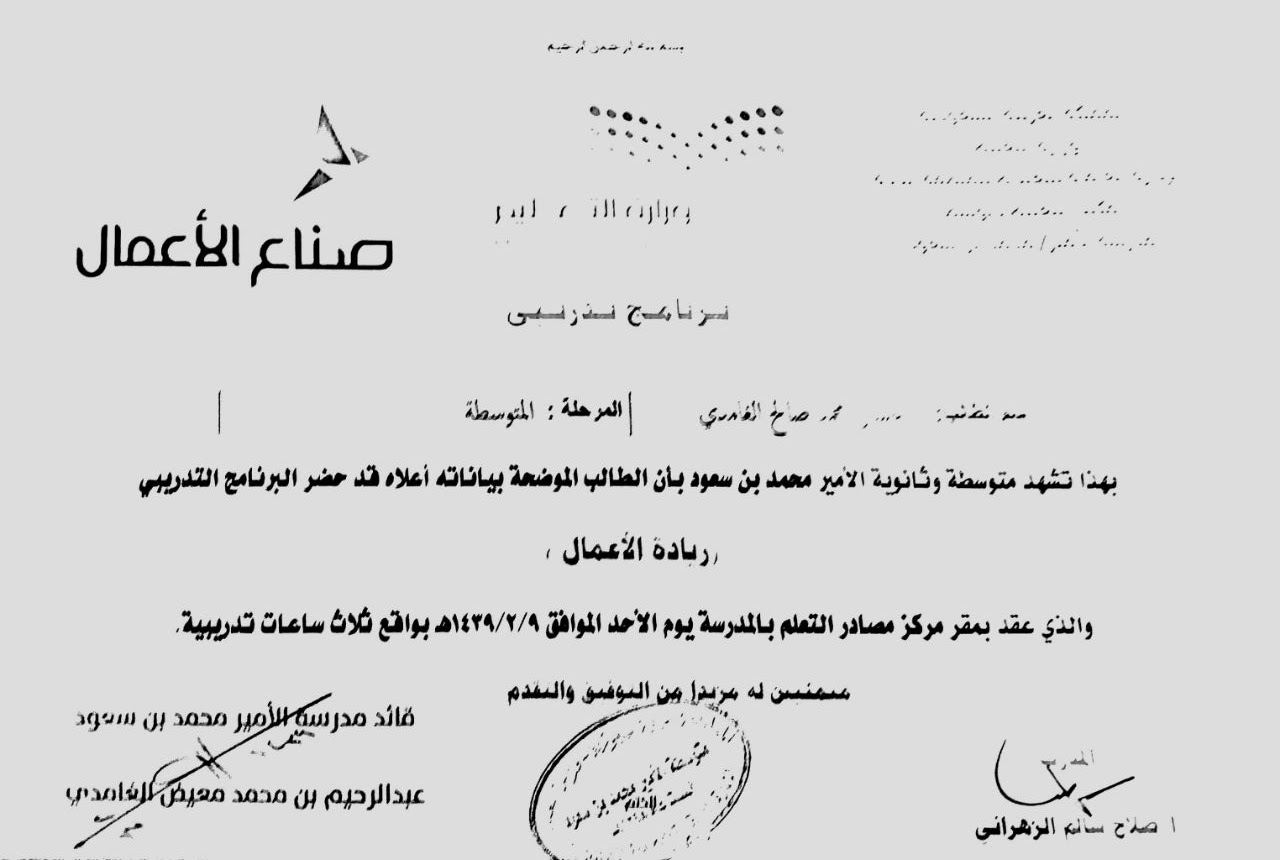 بسم الله الرحمن الرحيم
المملكة العربية السعودية
وزارة التعليم
صناع الأعمال
برنامج تدريبي
محمد صالح الغامدي
المرحلة : المتوسطة
بهذا تشهد متوسطة وثانوية الأمير محمد بن سعود بأن الطالب الموضحة بياناته أعلاه قد حضر البرنامج التدريبي
(ريادة الأعمال)
والذي عقد بمقر مركز مصادر التعلم بالمدرسة يوم الأحد الموافق ١٤٣٩/٢/٩هـ بواقع ثلاث ساعات تدريبية.
متمنين له مزيدا من التوفيق والتقدم
قائد مدرسة الأمير محمد بن سعود
عبدالرحيم بن محمد معيض الغامدي
المدرب
أ صلاح سالم الزهراني